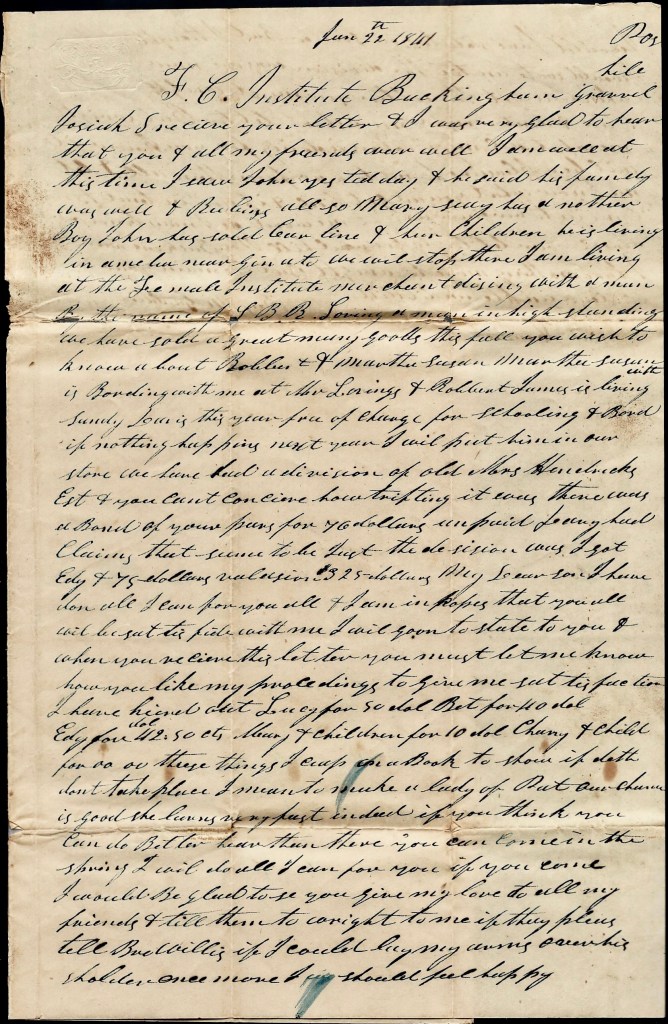 Jan 22th 1841
F. C. Institute Buckingham Gravvel hile
Josiah I recieve your letter & I was very glad to hear
that you & all my friends war well I am well at
this time I saw John yesterday & he said his famely
was well & all so Mary seay has a nother
Boy John has sold Car line & hur Children he is living
in amelia near Ginato we wil stop there I am living
at the Fe male Institute mer chant dising with a man
By the name of L B R. Loving a man in high standing
we have sold a great many goods this fall you wish to
know a bout Robbert & Marthe susan Marthe susan
is Bording with me at Mr Lovings & Robbert James is living with
sundy this year free of charge for schooling & Bord
if nothing happing next year I wil put him in our
store we have had a division of old Mrs Hendricks
Est & you cant concieve how trifling it was there was
a Bond of your pars for 70 dollars unpaid Jeany had
Claims that seume to be Just the de sision was I got
Edy & 75 dollars valasion $325 dollars My Dear son I have
don all I can for you all & I am in hopes that you all
wil be sat tis fide with me I wil goon to state to you &
when you recieve this let ter you must let me know
how you like my procedings to give me sat tis faction
I have hierd out Lucy for 50 dol Bet for 40 dol
Edy for 42.50 cts dol Meary & children for 10 dol Chany & child
for 00 00 these things I ceap on a Book to show if deth
dont take place I mean to make a lady of Pat our chance
is good she larns very fast indeed if you think you
Can do Bet ter hear than there you can come in the
spring I wil do all I can for you if you come
I would Be glad to se you give my love to all my
friends & till them to wright to me if they pleas
tell Bro Willis if I could lay my arms over his
sholders once more I should feel happy